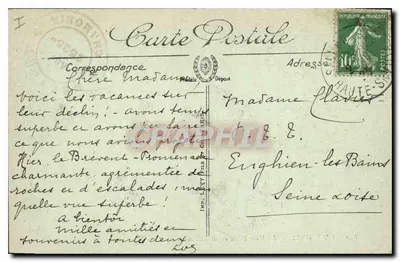 I
Carte Postale
Correspondance
Adresse
RÉPUBLIQUE FRANÇAISE
10
POSTES
HAUTE-S
Chère Madame
Voici les vacances sur
leur déclin! Avons temps
superbe et avons pu faire
ce que nous avions
Hier, le Brévent - Promenade
charmante, agrémentée de
roches et d'escalades, mais
quelle vue superbe!
A bientôt
Mille amitiés et
souvenirs à toutes deux
Madame
P. T. T.
Enghien-les-Bains
Seine & Oise
CPArama.com